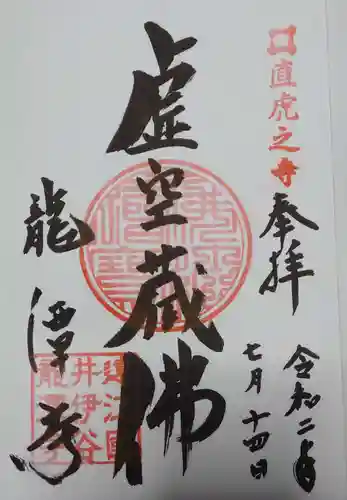 直虎之寺
奉拝
令和二年
七月十四日
虚空蔵佛
龍潭寺
遠江国
井伊谷
龍潭寺